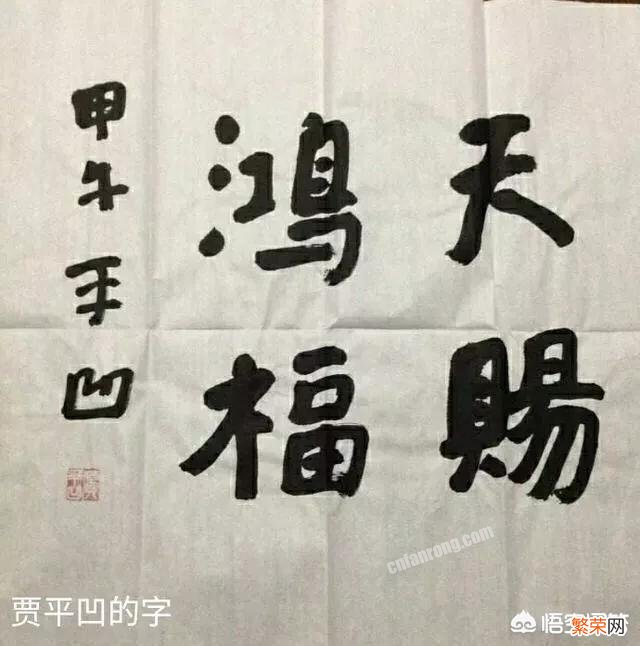 天賜
鴻福
甲午 平凹
贾平凹的字
cnfanrong.com
悟空问答
繁荣网